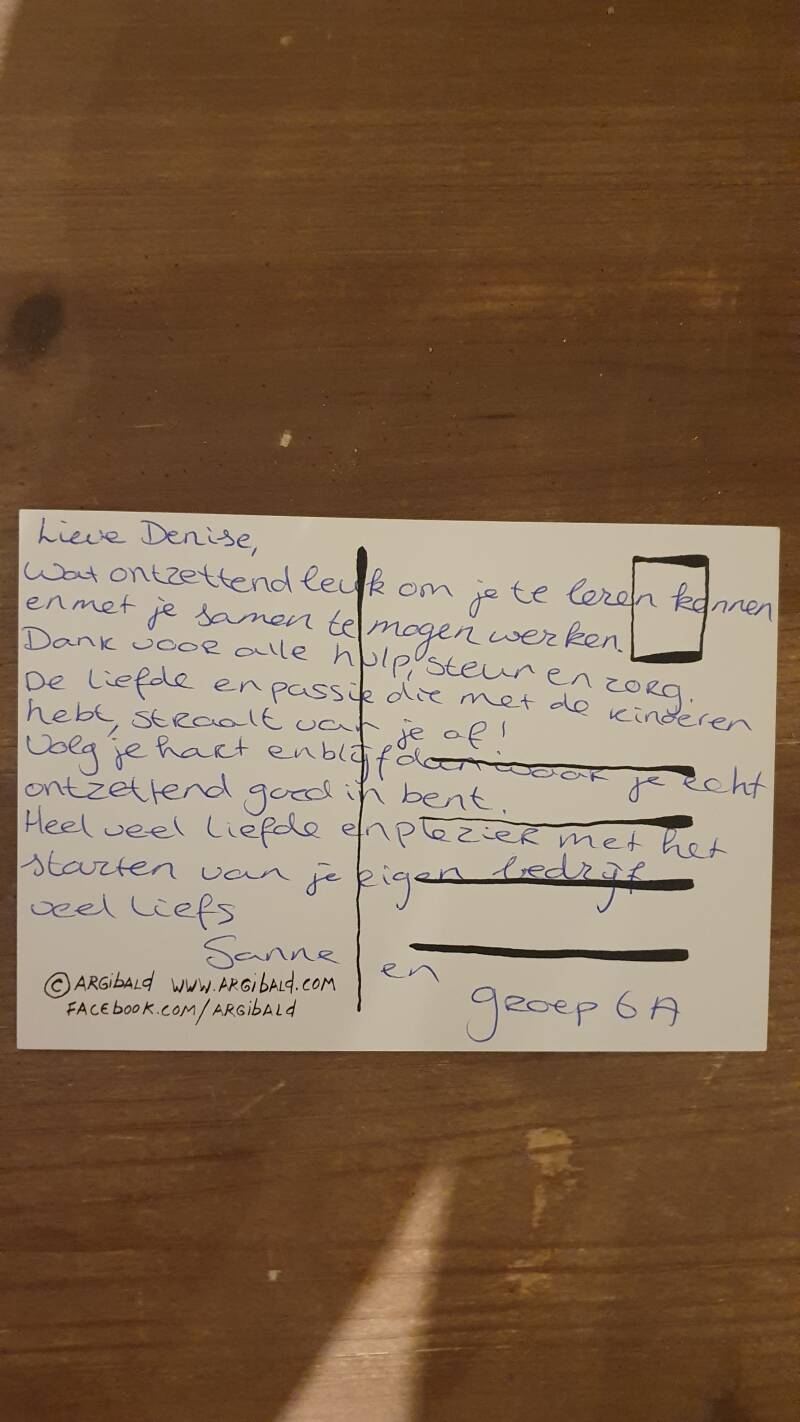 Lieve Denise,
Wat ontzettend leuk om je te leren kennen
en met je samen te mogen werken.
Dank voor alle hulp, steun en zorg.
De liefde en passie die met de kinderen
hebt, straalt van je af!
Volg je hart en blijf doen waar je echt
ontzettend goed in bent.
Heel veel liefde en plezier met het
starten van je eigen bedrijf
veel liefs
Sanne en
groep 6A
© ARGibALd www.ARGibALd.com
FACEbook.com/ARGibALd